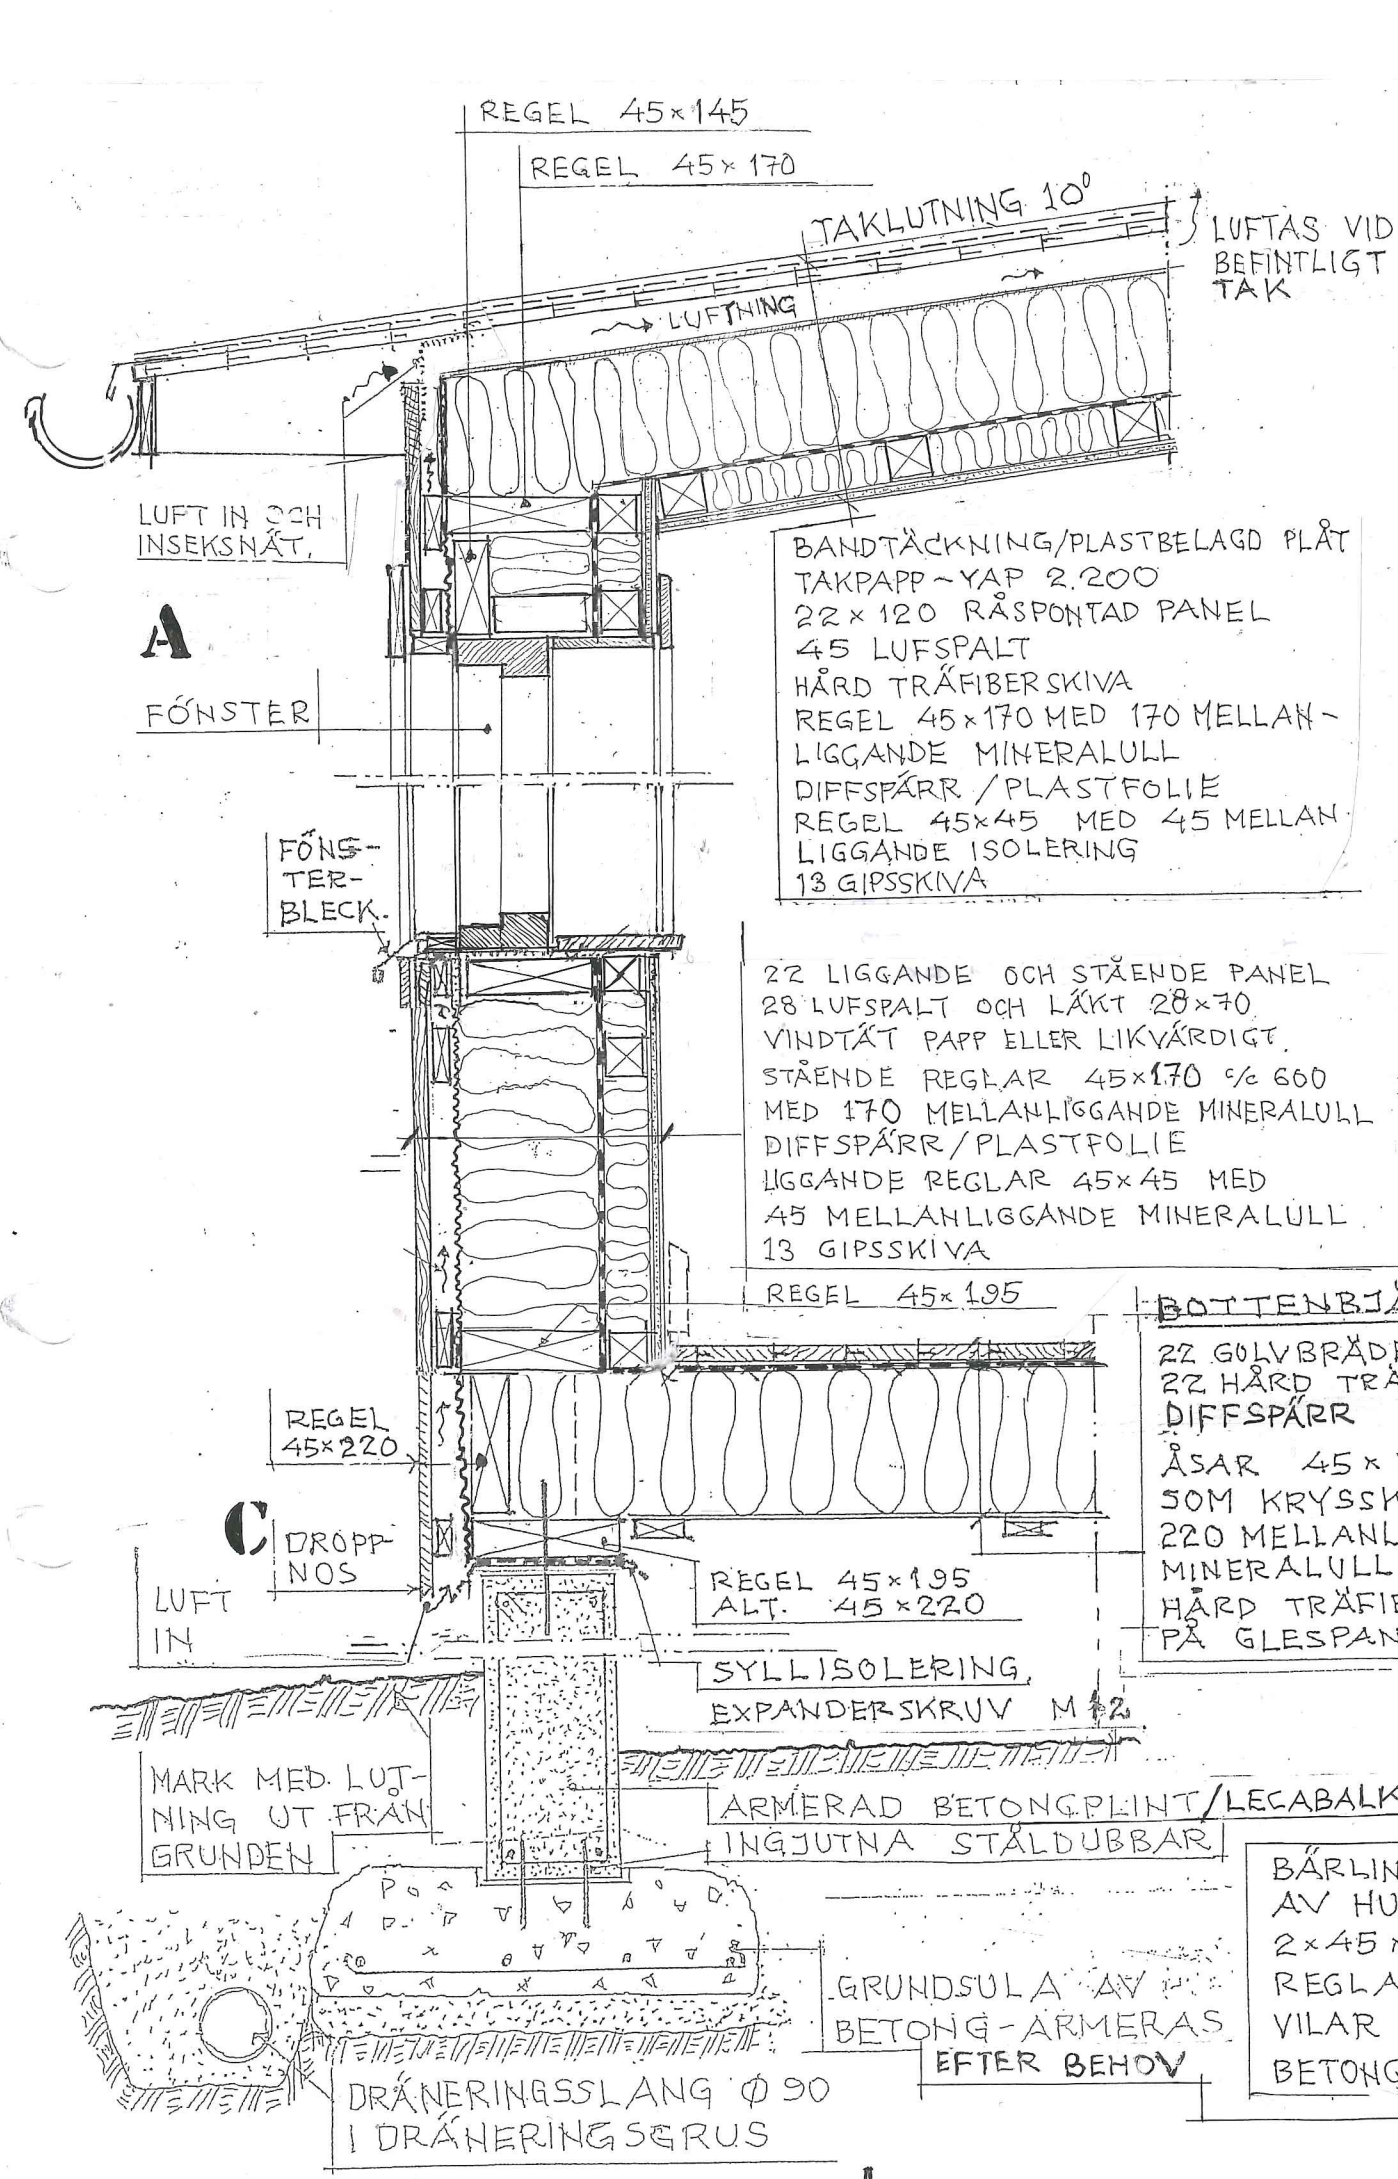 REGEL 45×145
REGEL 45×170
TAKLUTNING 10°
LUFTAS VID
BEFINTLIGT
TAK
LUFTNING
LUFT IN OCH
INSEKSNÄT.
A
FÖNSTER
BANDTÄCKNING/PLASTBELAGD PLÅT
TAKPAPP ~ YAP 2.200
22×120 RÅSPONTAD PANEL
45 LUFSPALT
HÅRD TRÄFIBERSKIVA
REGEL 45×170 MED 170 MELLAN-
LIGGANDE MINERALULL
DIFFSPÄRR / PLASTFOLIE
REGEL 45×45 MED 45 MELLAN-
LIGGANDE ISOLERING
13 GIPSSKIVA
FÖNS-
TER-
BLECK.
22 LIGGANDE OCH STÅENDE PANEL
28 LUFSPALT OCH LÄKT 28×70
VINDTÄT PAPP ELLER LIKVÄRDIGT.
STÅENDE REGLAR 45×170 c/c 600
MED 170 MELLANLIGGANDE MINERALULL
DIFFSPÄRR/PLASTFOLIE
LIGGANDE REGLAR 45×45 MED
45 MELLANLIGGANDE MINERALULL
13 GIPSSKIVA
REGEL 45×195
BOTTENBJÄ
22 GOLVBRÄD
22 HÅRD TRÄ
DIFFSPÄRR
ÅSAR 45×
SOM KRYSS
220 MELLANL
MINERALULL
HÅRD TRÄFI
PÅ GLESPAN
REGEL
45×220
C
DROPP-
NOS
LUFT
IN
REGEL 45×195
ALT. 45×220
SYLLISOLERING,
EXPANDERSKRUV M12
MARK MED LUT-
NING UT FRÅN
GRUNDEN
ARMERAD BETONGPLINT/LECABALK
INGJUTNA STÅLDUBBAR
BÄRLIN
AV HU
2×45×
REGLA
VILAR
BETONG
GRUNDSULA AV
BETONG-ARMERAS
EFTER BEHOV
DRÄNERINGSSLANG Ø 90
I DRÄNERINGSGRUS